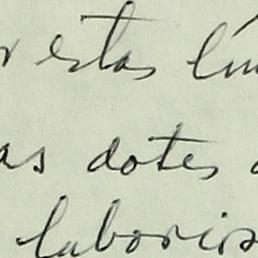 r estas lín
as dotes d
laborios